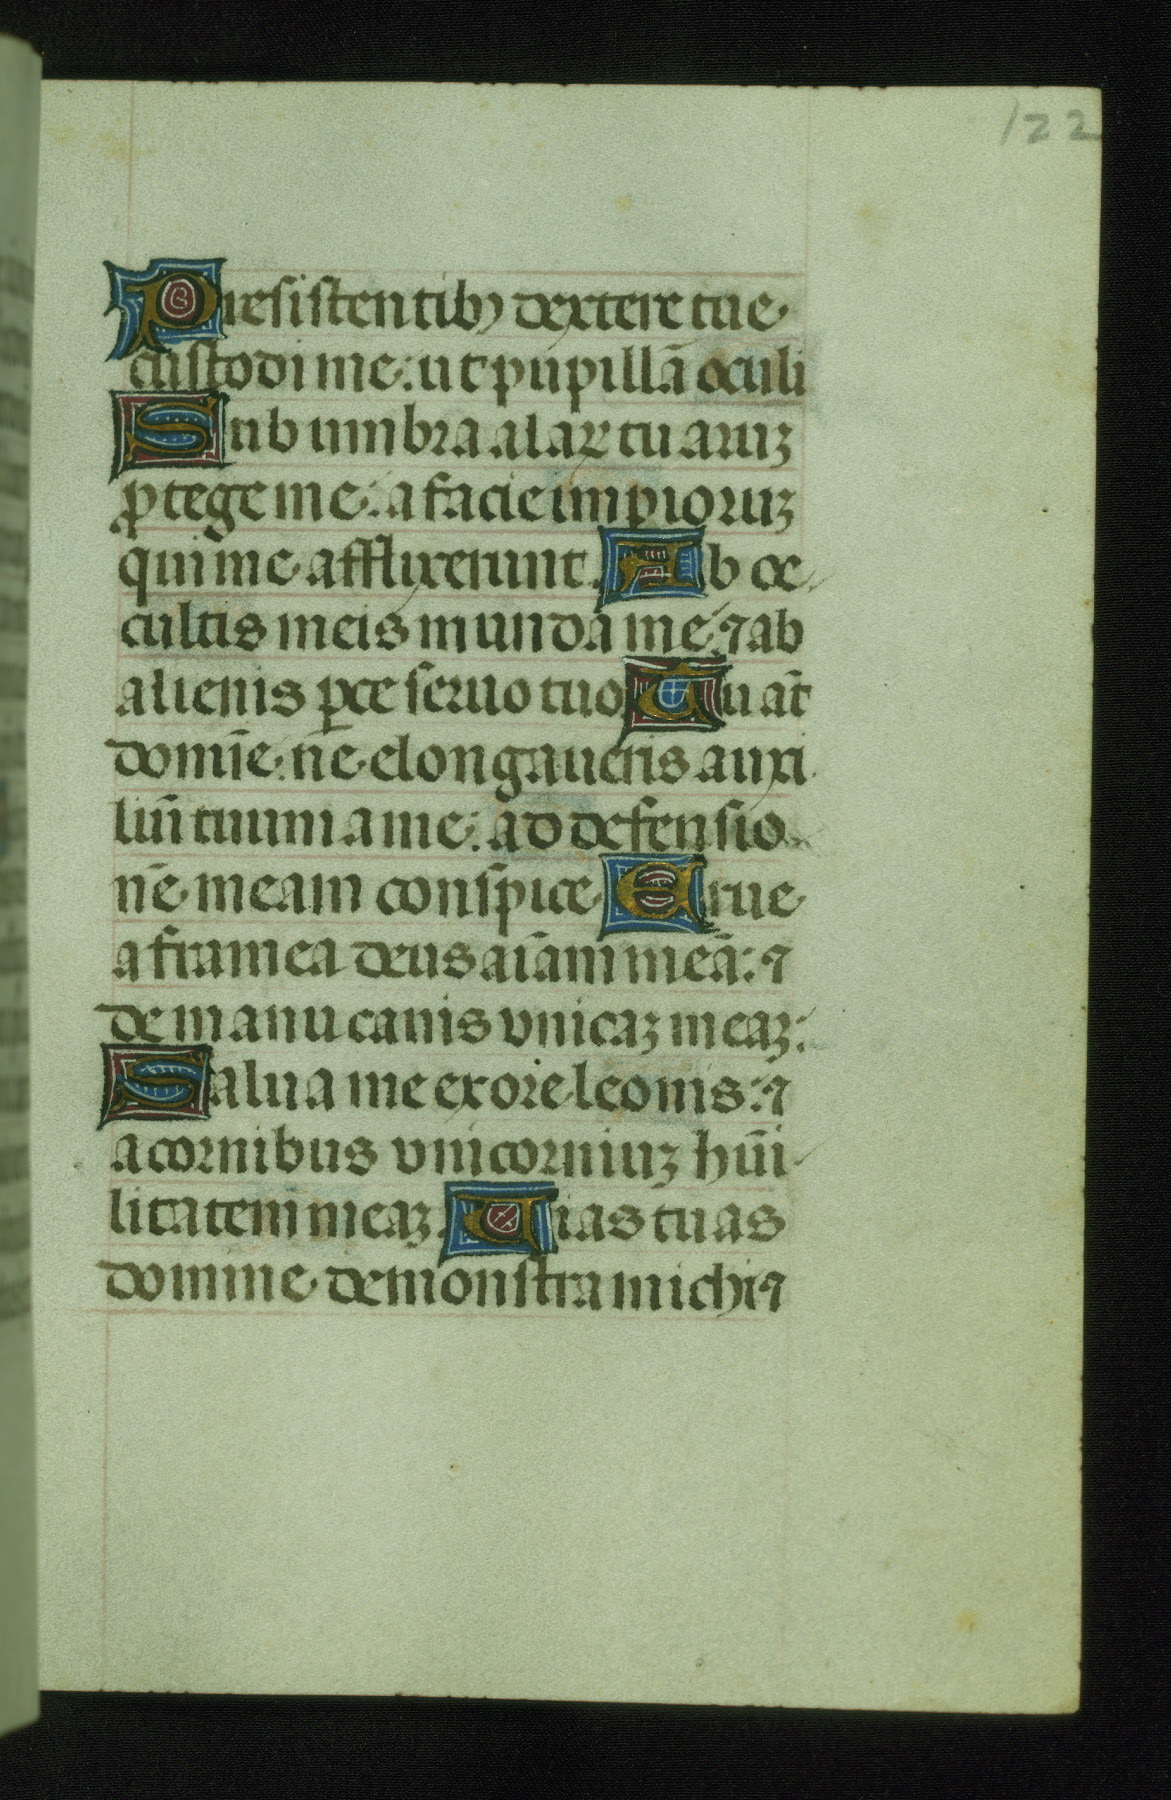 122
Resistentibꝫ dextere tue
custodi me: ut pupillā oculi
Sub umbra alaꝝ tuaruꝫ
ꝓtege me: a facie impioruꝫ
qui me afflixerunt. Ab oc
cultis meis munda me ⁊ ab
alienis ꝑce seruo tuo Tu āt
domīe ne elongaueris auxi
liū tuum a me: ad defensio
nē meam conspice Erue
a framea deus aīam meā: ⁊
de manu canis vnicaꝫ meaꝫ:
Salua me ex ore leonis: ⁊
a cornibus vnicorniuꝫ hūi
litatem meaꝫ. Vias tuas
domine demonstra michi ⁊